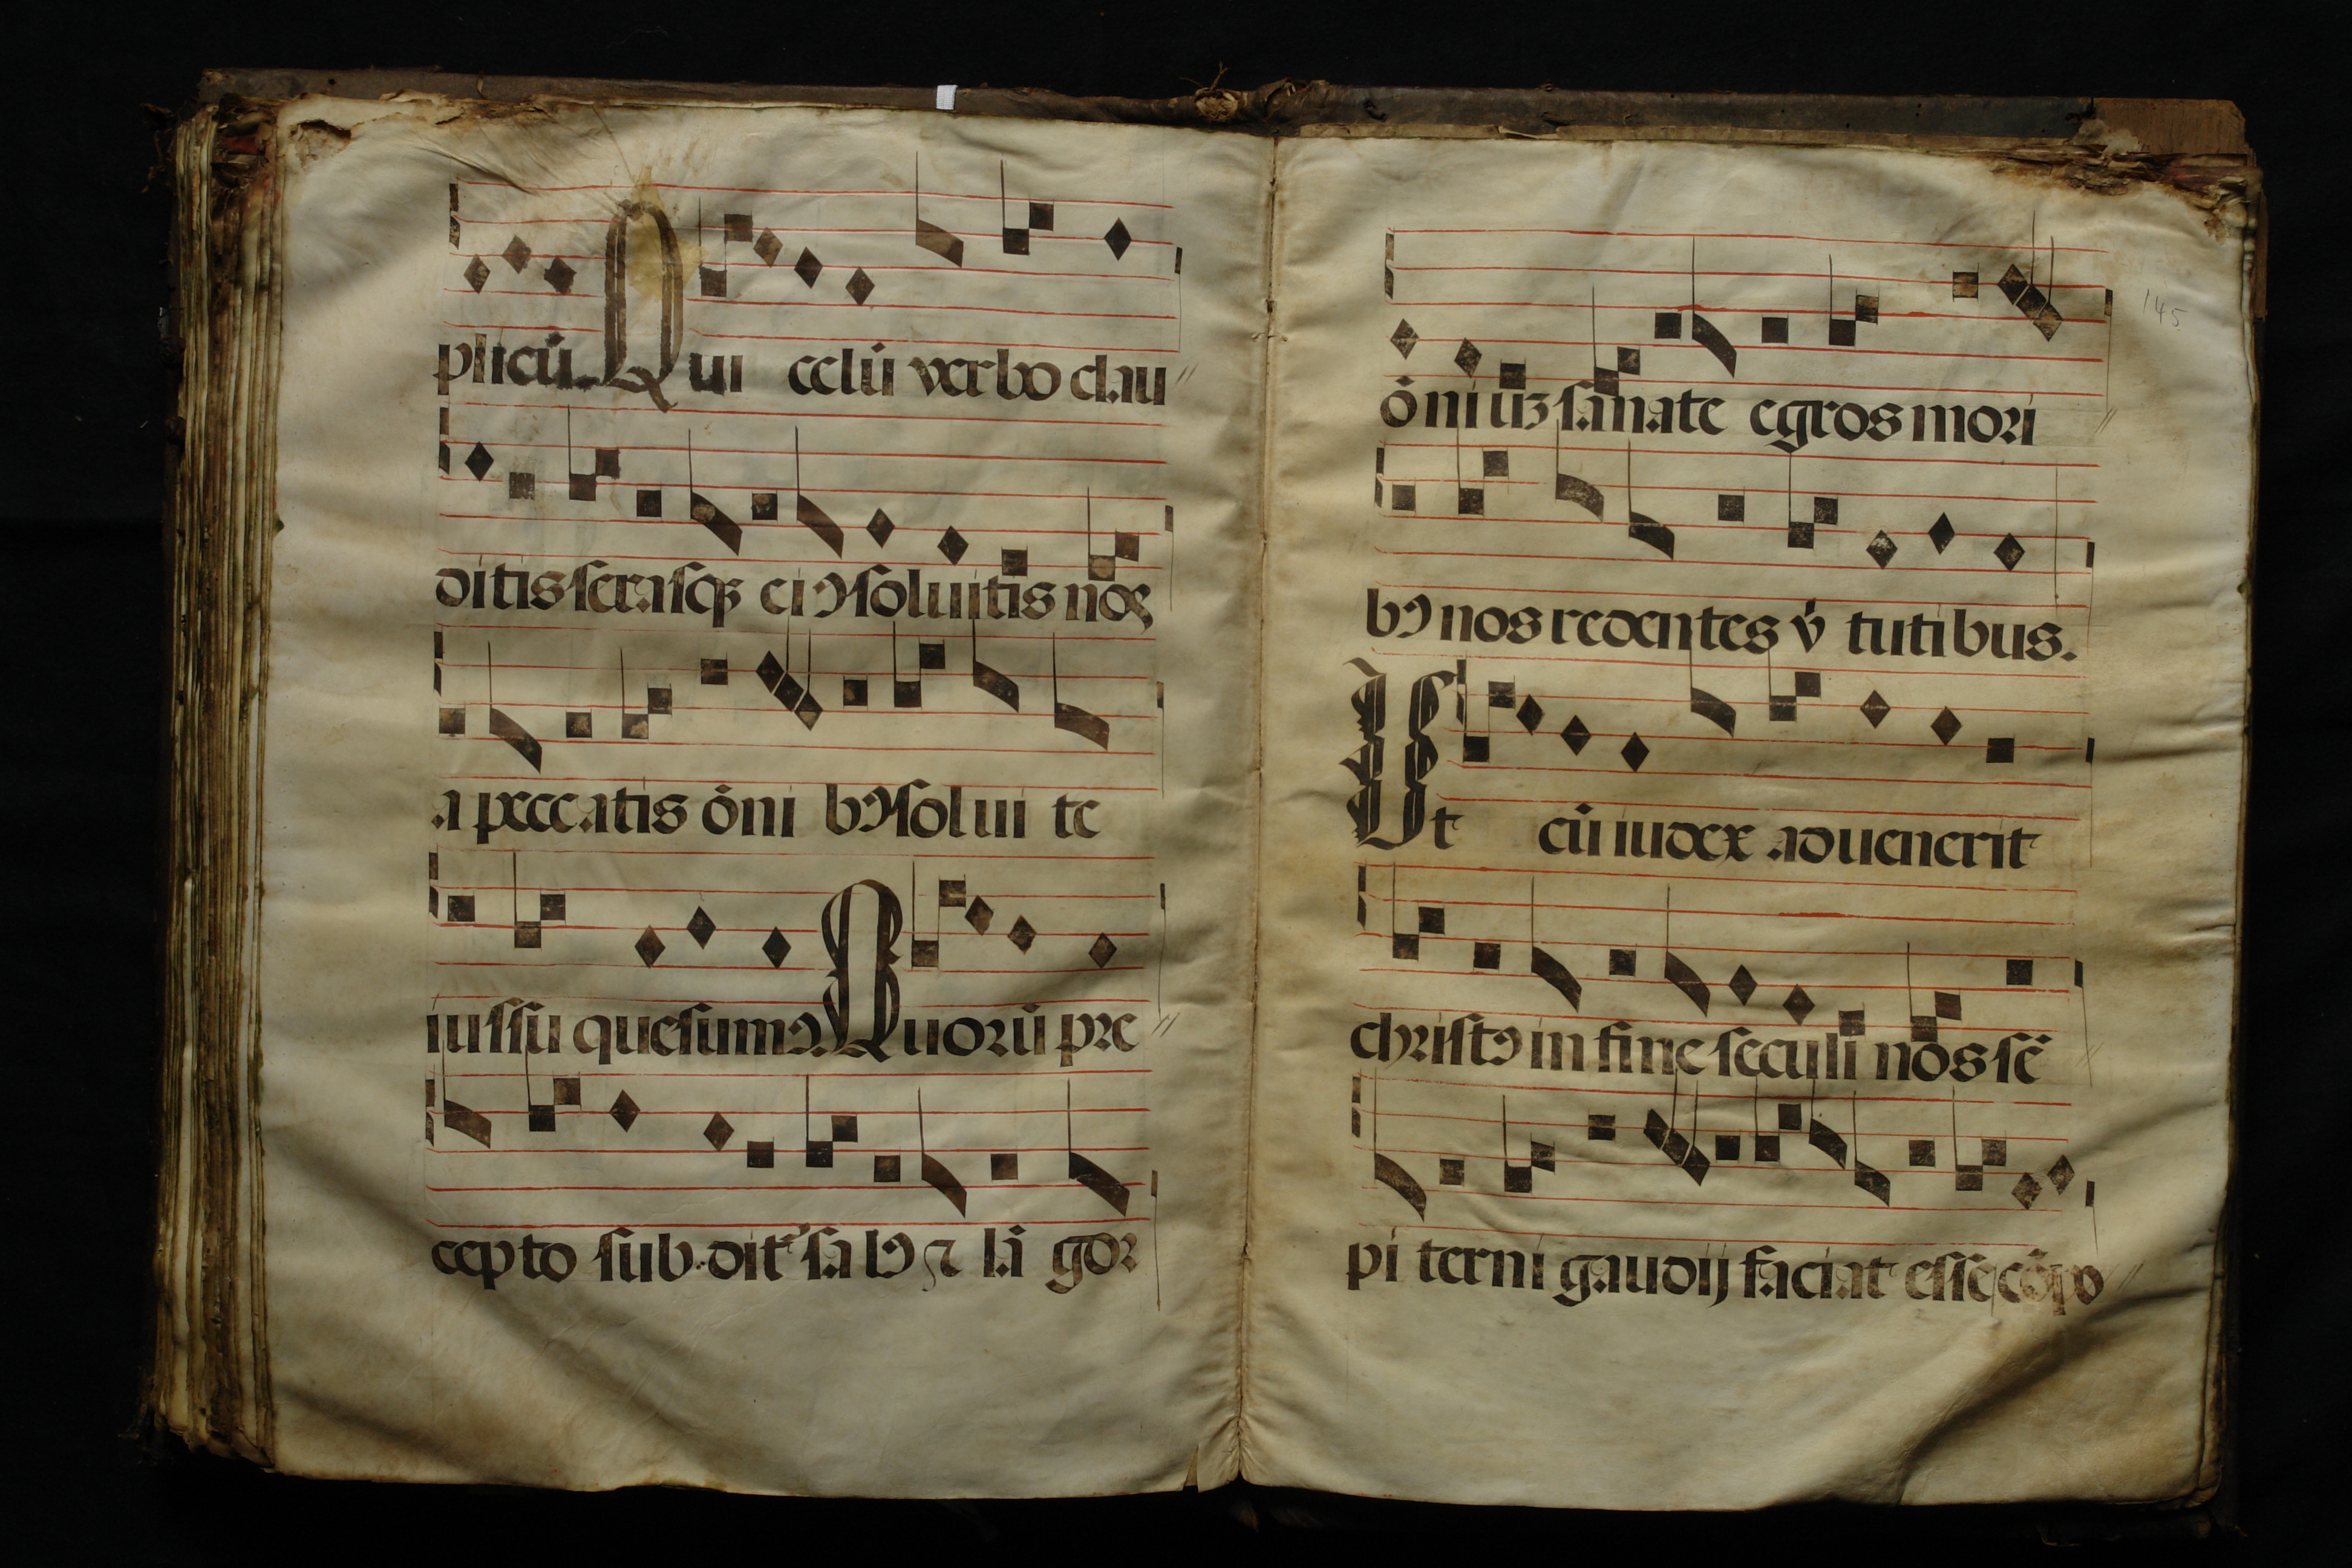 plicū. Qui celū verbo clau
ditis serasqꝫ eiꝰ soluitis noſ
a peccatis ōni bꝰ solui te
iussu quesumꝰ. Quorū pre
cepto subditꝰ salꝰ ⁊ lā gor
ōniuꝫ sanate egros mori
bꝰ nos redentes v̇tutibus.
Ut cū iudex aduenerit
christꝰ in fine seculi nos sē
pi terni gaudij faciat esse cōpo
145